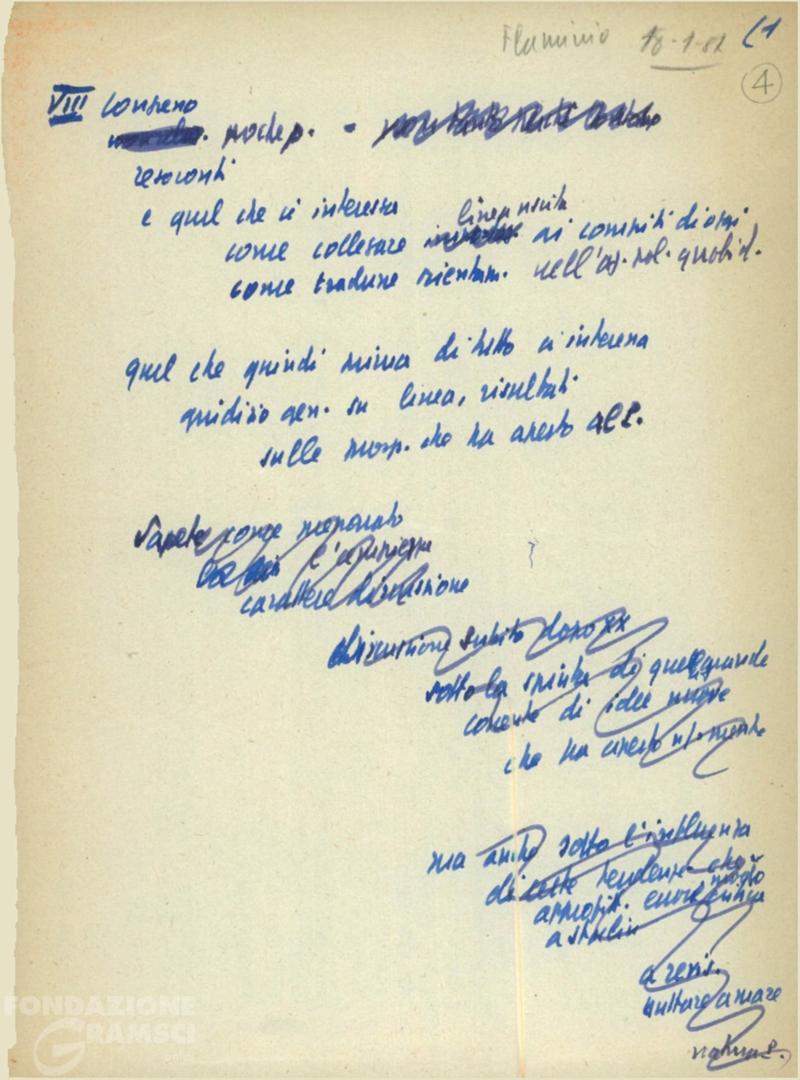 Flaminio 18-1-57 (1
4
VIII Congresso
poche p.
resoconti
e quel che ci interessa
linea uscita
come collegare ai compiti di oggi
come tradurre orientam. nell'az. pol. quotid.
quel che quindi prima di tutto ci interessa
giudizio gen. su linea, risultati
sulle prosp. che ha aperto al P.
Sapete come preparato
carattere discussione
discussione subito dopo XX
sotto la spinta di quella grande
corrente di idee nuove
che ha aperto
ma anche sotto l'influenza
di certe tendenze che
approfit. critica
a Stalin
a revis.
buttare a mare
natura P.
FONDAZIONE
GRAMSCI